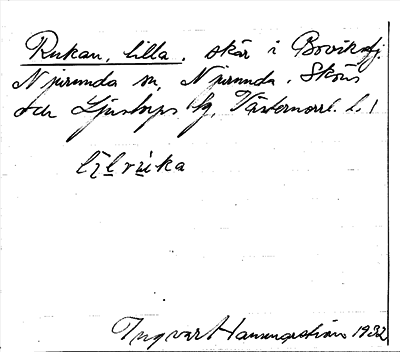 Rukan, lilla, skär i Bovikfj.
Njurunda sn, Njurunda, Sköns
och Ljustorps tg, Västernorrl. l.
Ingvar 1932